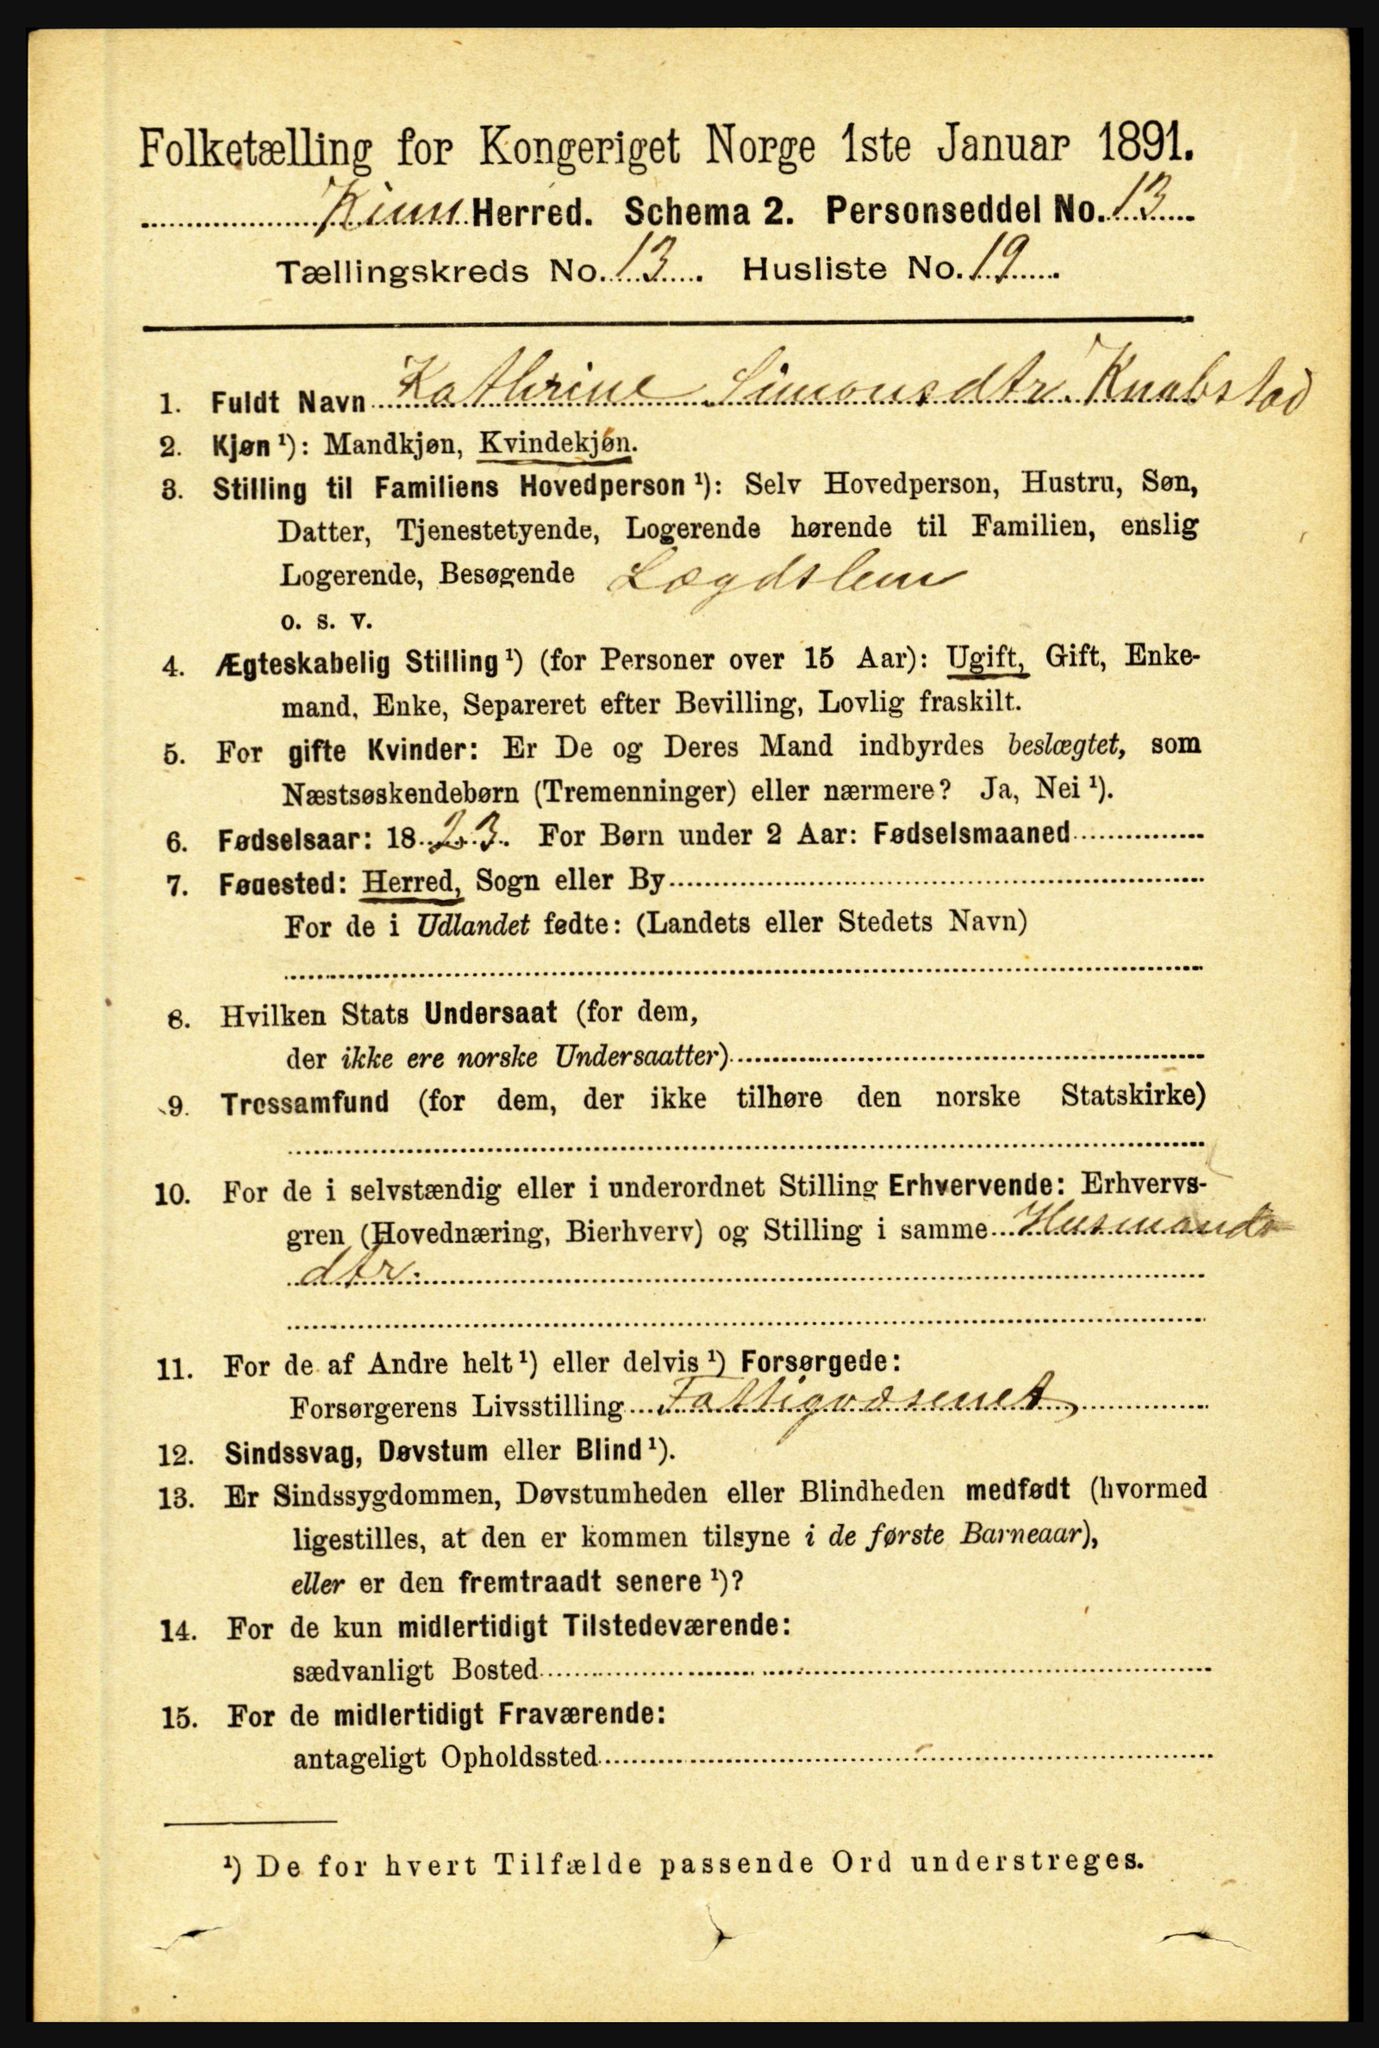 Folketælling for Kongeriget Norge 1ste Januar 1891.
Kinn Herred. Schema 2. Personseddel No. 13
Tællingskreds No. 13. Husliste No. 19
1. Fuldt Navn Kathrine Simonsdtr. Knabstad
2. Kjøn ¹): Mandkjøn, Kvindekjøn.
3. Stilling til Familiens Hovedperson ¹): Selv Hovedperson, Hustru, Søn,
Datter, Tjenestetyende, Logerende hørende til Familien, enslig
Logerende, Besøgende Lægdslem
o. s. v.
4. Ægteskabelig Stilling ¹) (for Personer over 15 Aar): Ugift, Gift, Enke-
mand, Enke, Separeret efter Bevilling, Lovlig fraskilt.
5. For gifte Kvinder: Er De og Deres Mand indbyrdes beslægtet, som
Næstsøskendebørn (Tremenninger) eller nærmere? Ja, Nei ¹).
6. Fødselsaar: 1823. For Børn under 2 Aar: Fødselsmaaned
7. Føaested: Herred, Sogn eller By
For de i Udlandet fødte: (Landets eller Stedets Navn)
8. Hvilken Stats Undersaat (for dem,
der ikke ere norske Undersaatter)
9. Trossamfund (for dem, der ikke tilhøre den norske Statskirke)
10. For de i selvstændig eller i underordnet Stilling Erhvervende: Erhvervs-
gren (Hovednæring, Bierhverv) og Stilling i samme Husmands
dtr.
11. For de af Andre helt ¹) eller delvis ¹) Forsørgede:
Forsørgerens Livsstilling Fattigvæsenet
12. Sindssvag, Døvstum eller Blind ¹).
13. Er Sindssygdommen, Døvstumheden eller Blindheden medfødt (hvormed
ligestilles, at den er kommen tilsyne i de første Barneaar),
eller er den fremtraadt senere ¹)?
14. For de kun midlertidigt Tilstedeværende:
sædvanligt Bosted
15. For de midlertidigt Fraværende:
antageligt Opholdssted
¹) De for hvert Tilfælde passende Ord understreges.